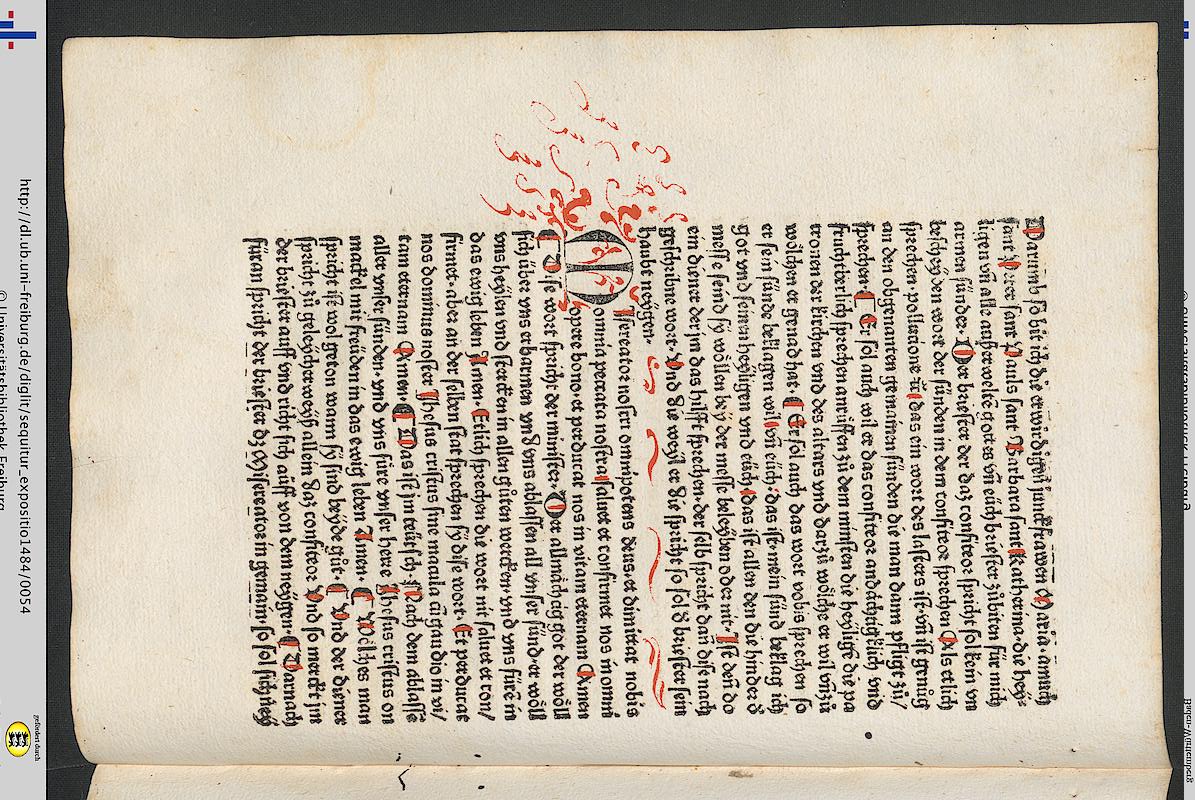 Darumb so bit ich die erwirdigen junkfrawen Maria. auuch
sant Peter sant Pauls sant Barbara sant Katherina. die hey/
ligen vñ alle außerwelte gottes vñ euch briester zů biten für mich
armen sünder. Der briester der daz confiteor spricht sol kein vn
beschyden wort der sünden in dem confiteor sprechen Als etlich
sprechen. pollucione ꝛc̃ das ein wort des lasters ist. vñ ist genůg
an den obgenanten gemainen sünden die man darinn pfligt zů/
sprechen. Er sol auch wil er das confiteor andächtigklich vnd
fruchtberlich sprechen anrüffen zů dem minsten die heylige die pa
tronen der kirchen vnd des altars vnd darzů wölche er wil vñ zů
wölchen er genad hat. Er sol auch das wort vobis sprechen so
er sein sünde beklagen wil vñ euch. das ist. mein sünd beklag ich
got vnd seinen heyligen vnd euch das ist allen den die hinder d̕
messe seind sy wöllen bey der messe beleyben oder nit. Ist den do
ein diener der jm das hilfft sprechen. der selb spricht dañ dise nach
geschribne wort. Vnd die weyl er die spricht so sol d̕ briester sein
haubt neygen.
Misereator nostri omnipotens deus. et dimittat nobis
omnia peccata nostra saluet et confirmet nos in omni
opere bono. et perducat nos in vitam eternam Amen
Dise wort spricht der minister. Der allmächtig got der wöll
sich über vns erbarmen vnd vns ablassen all vnser sünd. er wöll
vns heylen vnd stercken in allen gůten wercken. vnd vns füre in
das ewig leben Amen. Etlich sprechen die wort nit saluet et con/
firmet. aber an der selben stat sprechen sy dise wort. Et perducat
nos dominus noster Jhesus cristus sine macula cũ gaudio in vi/
tam eternam Amen. Das ist im teütsch Nach dem ablasse
aller vnser sünden. vnd vns füre vnser herre Jhesus cristus on
mackel mit freüden in das ewig leben Amen. Welches man
spricht ist wol geton wann sy sind beyde gůt. Vnd der diener
spricht zů geleycher weyß allein daz confiteor Vnd so merckt jm
der briester auff vnd richt sich auff von dem neygen. Darnach
füran spricht der briester dz Misereator in gemain. so sol sich ney
http://dl.ub.uni-freiburg.de/diglit/sequitur_expositio1484/0054
© Universitätsbibliothek Freiburg
gefördert durch